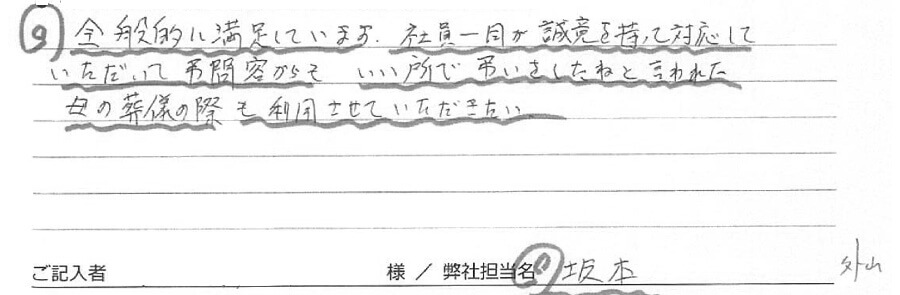 ⑨ 全般的に満足しています. 社員一同が誠意を持って対応して
いただいて 弔問客からも いい所で弔いをしたねと言われた
母の葬儀の際も利用させていただきたい
ご記入者 様 / 弊社担当名 坂本 外山